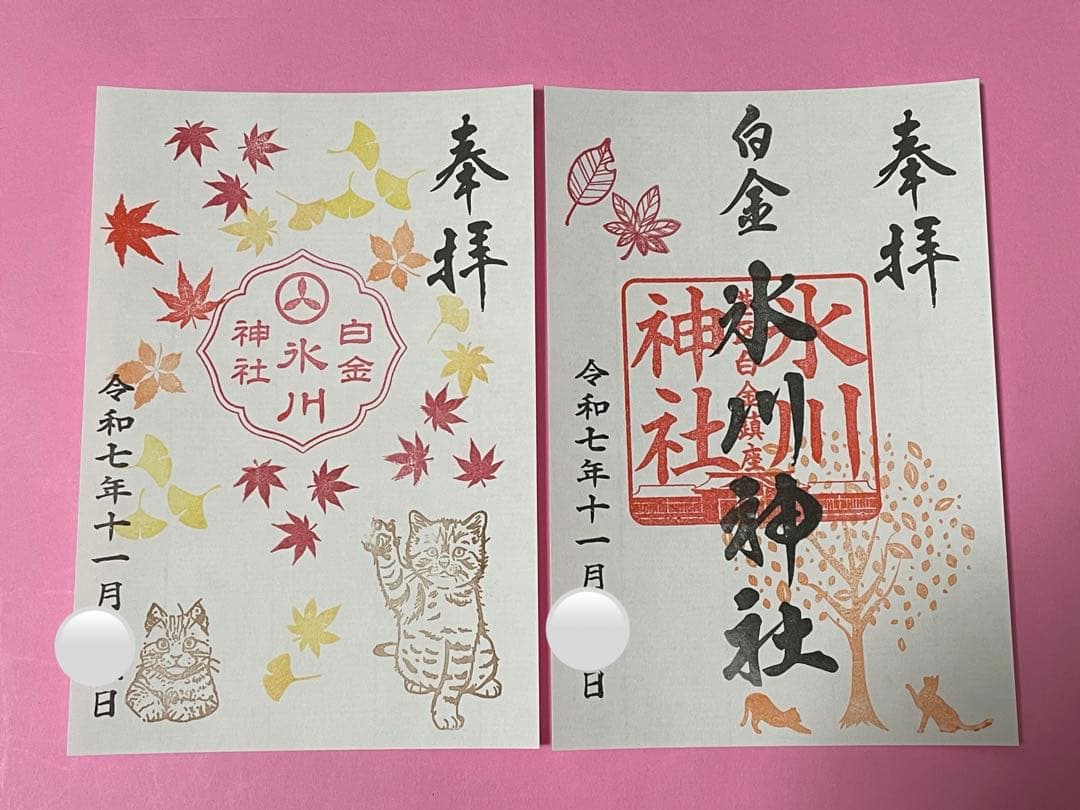 奉拝
白金
氷川
神社
令和七年十一月
日
奉拝
白金
氷川神社
氷川
神社
白金鎮座
令和七年十一月
日